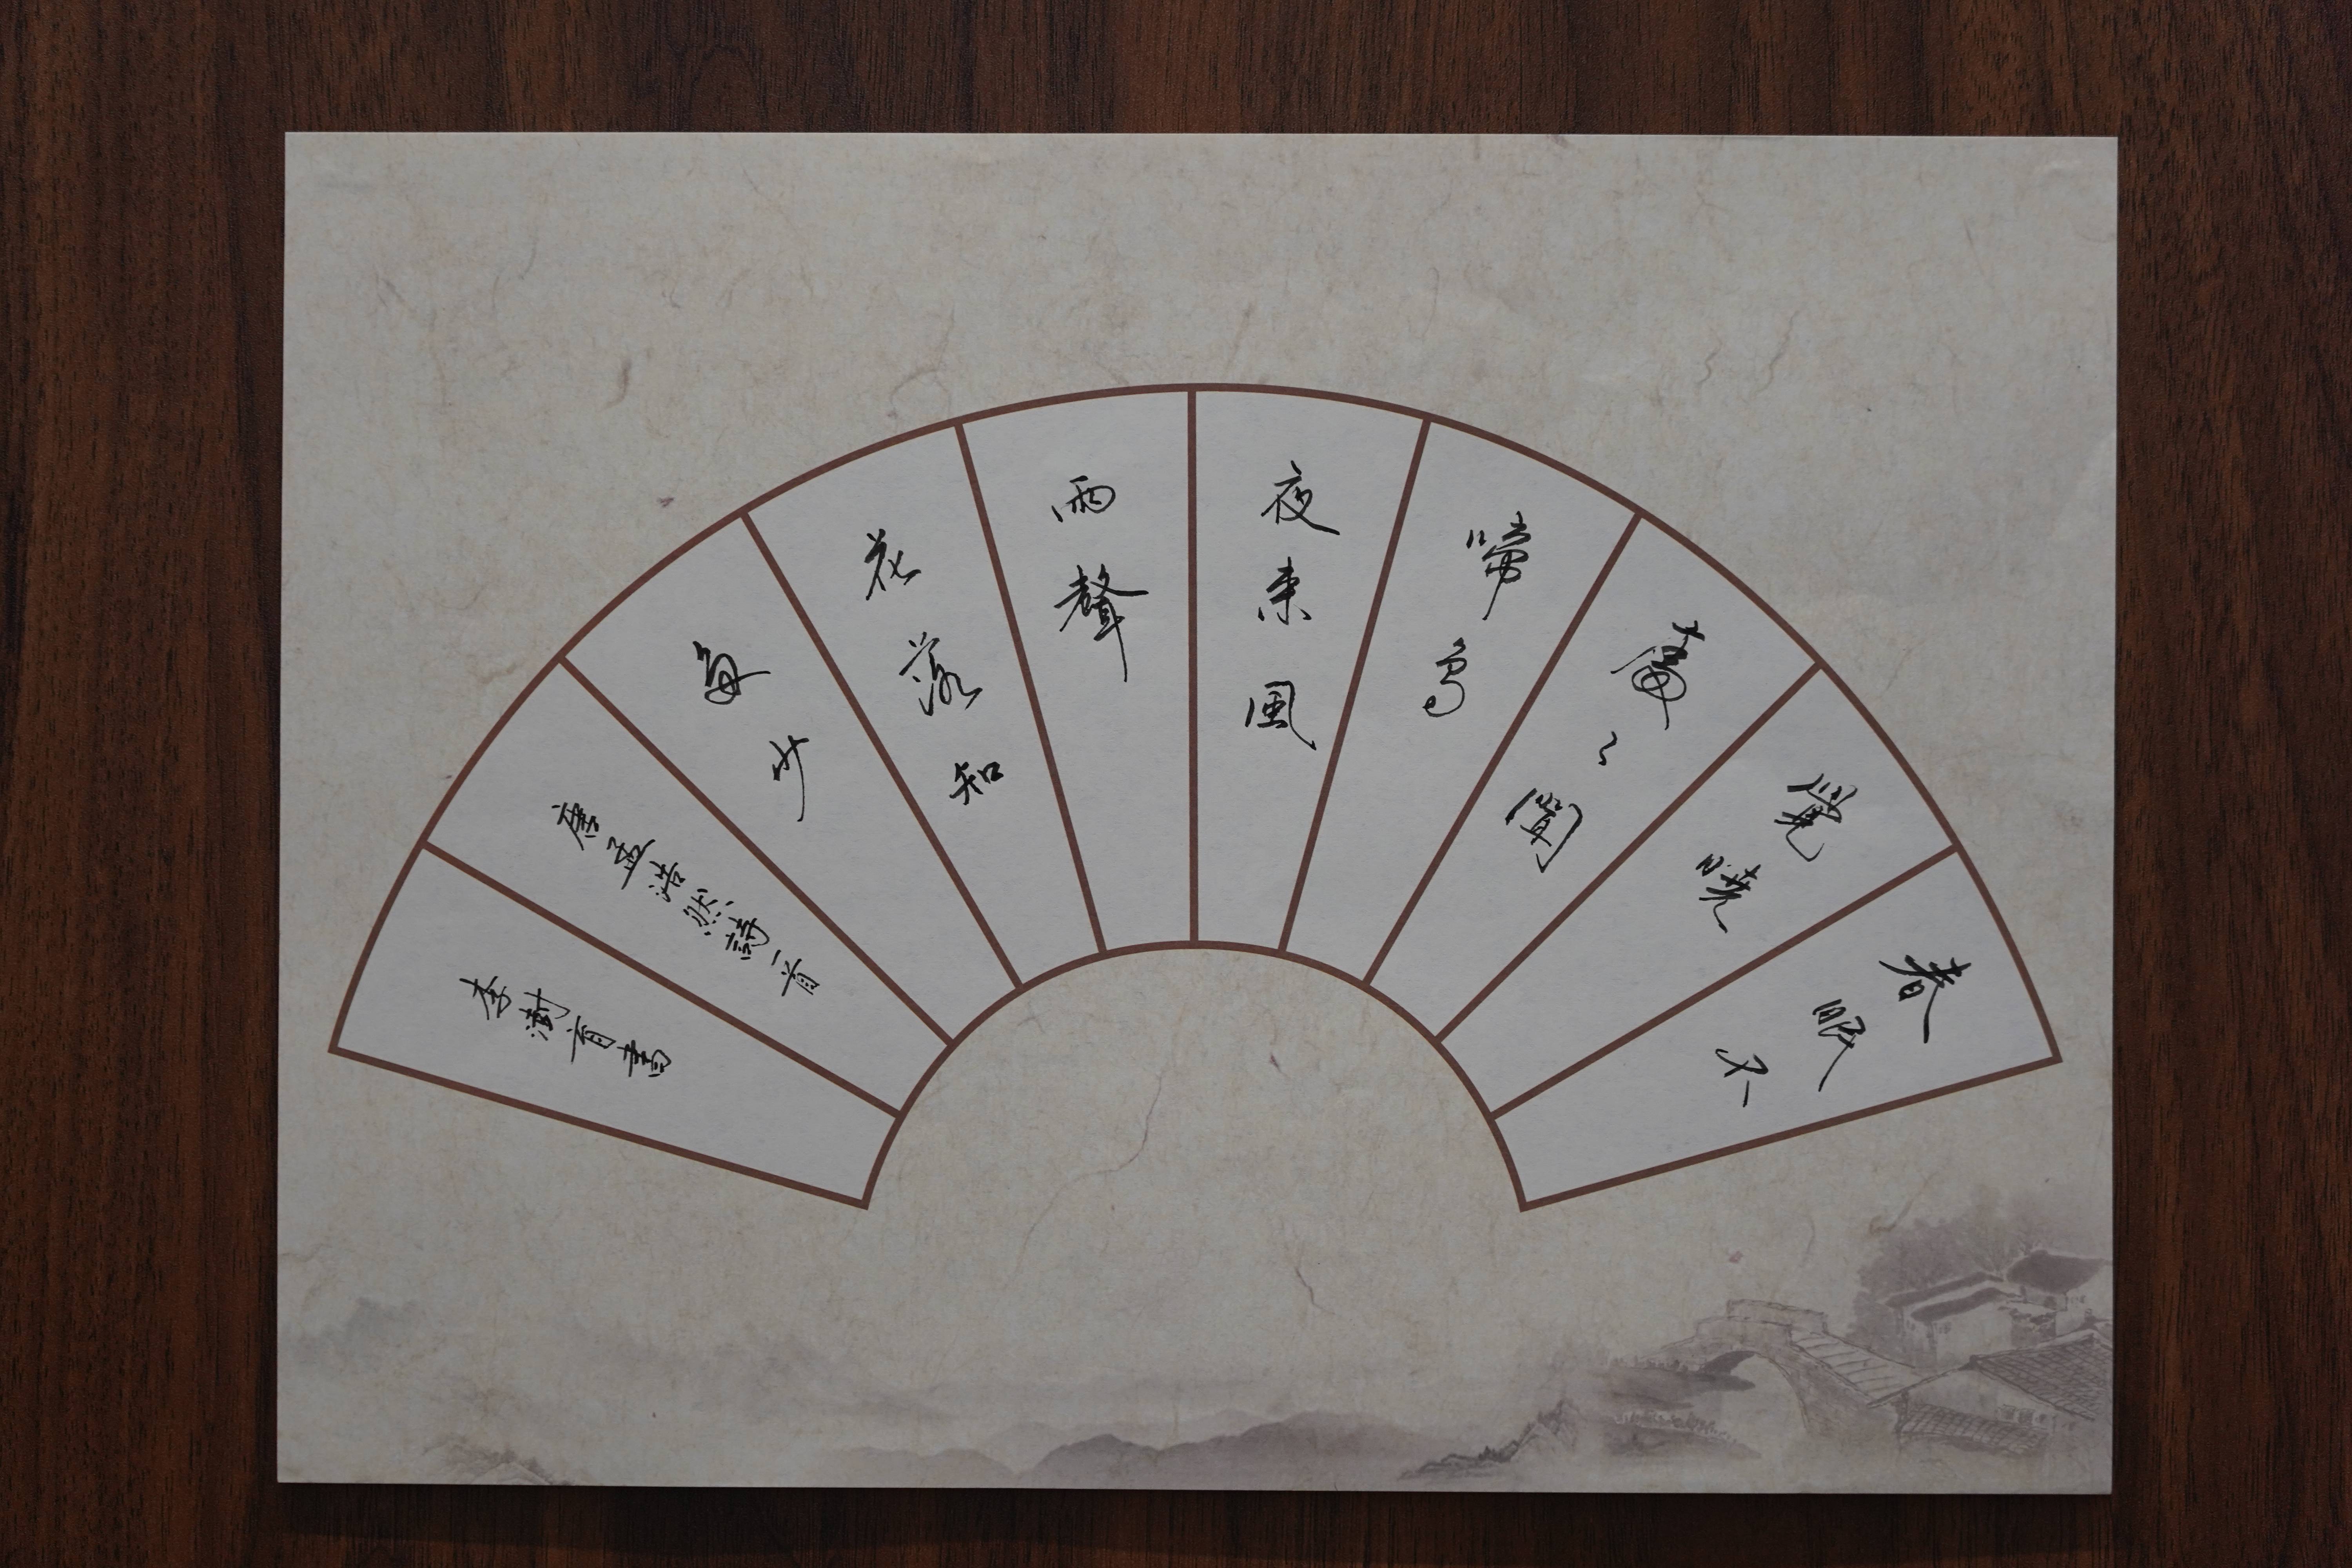 春眠不
覺暁
處々聞
啼鳥
夜来風
雨聲
花落知
多少
唐孟浩然詩一首
李書